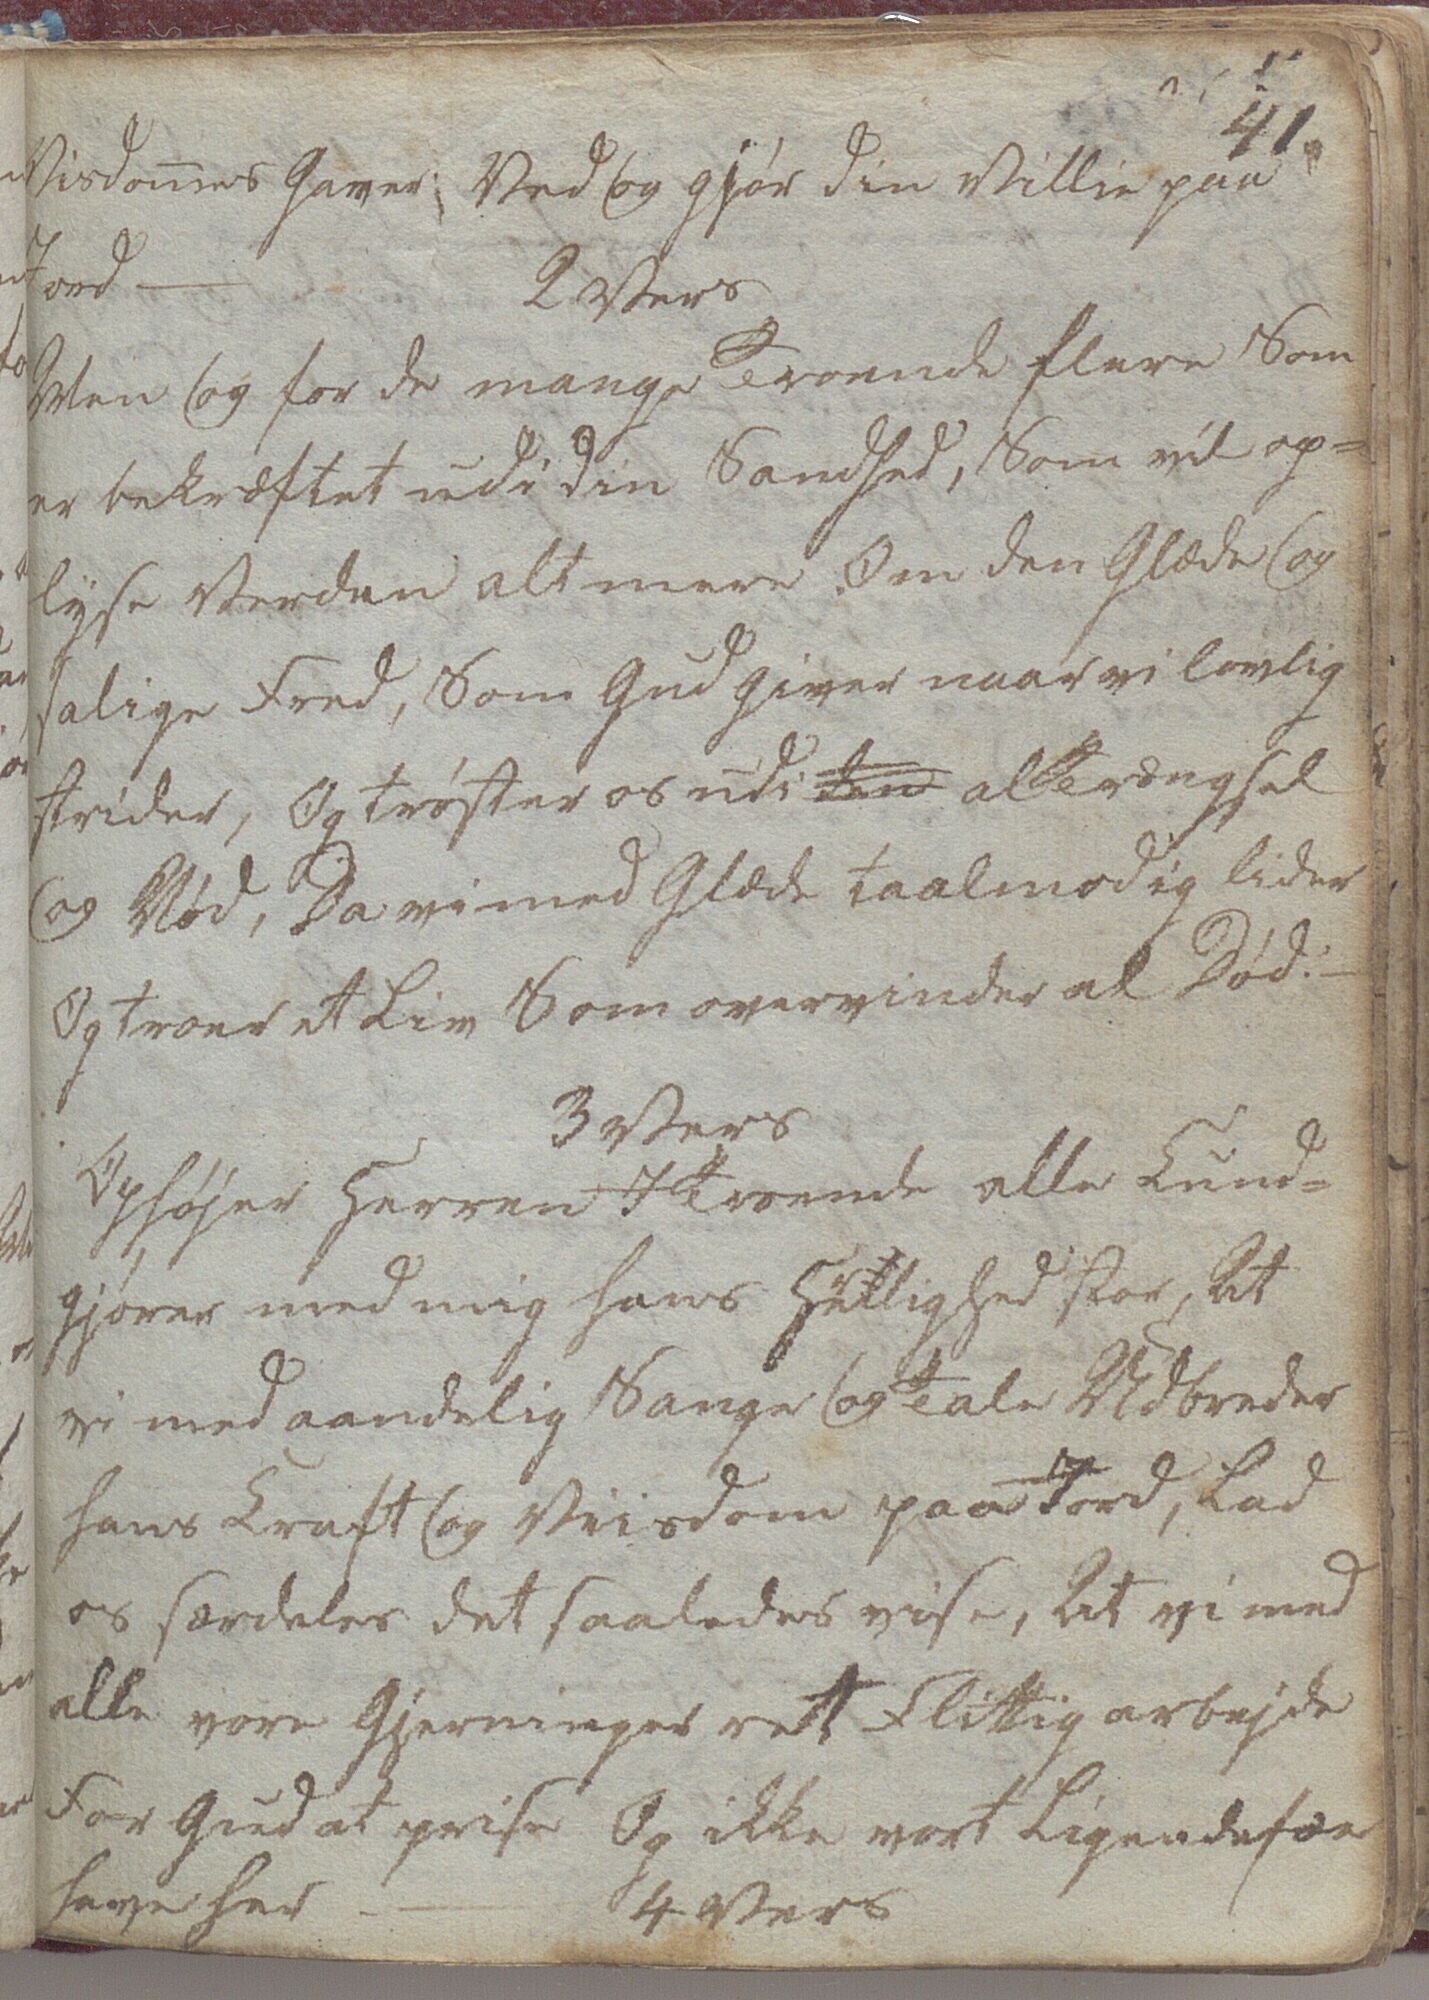 41.
Visdommes Gaver; Ved og gjør din Villie paa
Jord —
2 Vers
Men og for de mange Troende flere Som
er bekræftet udi din Sandhed, Som vil op=
lyse Verden alt mere Om den Glæde og
salige Fred, Som Gud giver naar vi lovlig
strider, Og trøster os udi den al Trængsel
og Nød, Da vi med Glæde taalmodig lider
Og troer et Liv Som overvinder al Død. —
3 Vers
Ophøjer Herren I Troende alle Kund=
gjører med mig hans Hellighed stor, At
vi med aandelig Sange og Tale Udbreder
hans Kraft og Viisdom paa Jord, Lad
os særdeles det saaledes vise, At vi med
alle vore Gjerninger ret Flittig arbejde
For Gud at prise Og ikke vort Ligendefæ
have her —
4 Vers